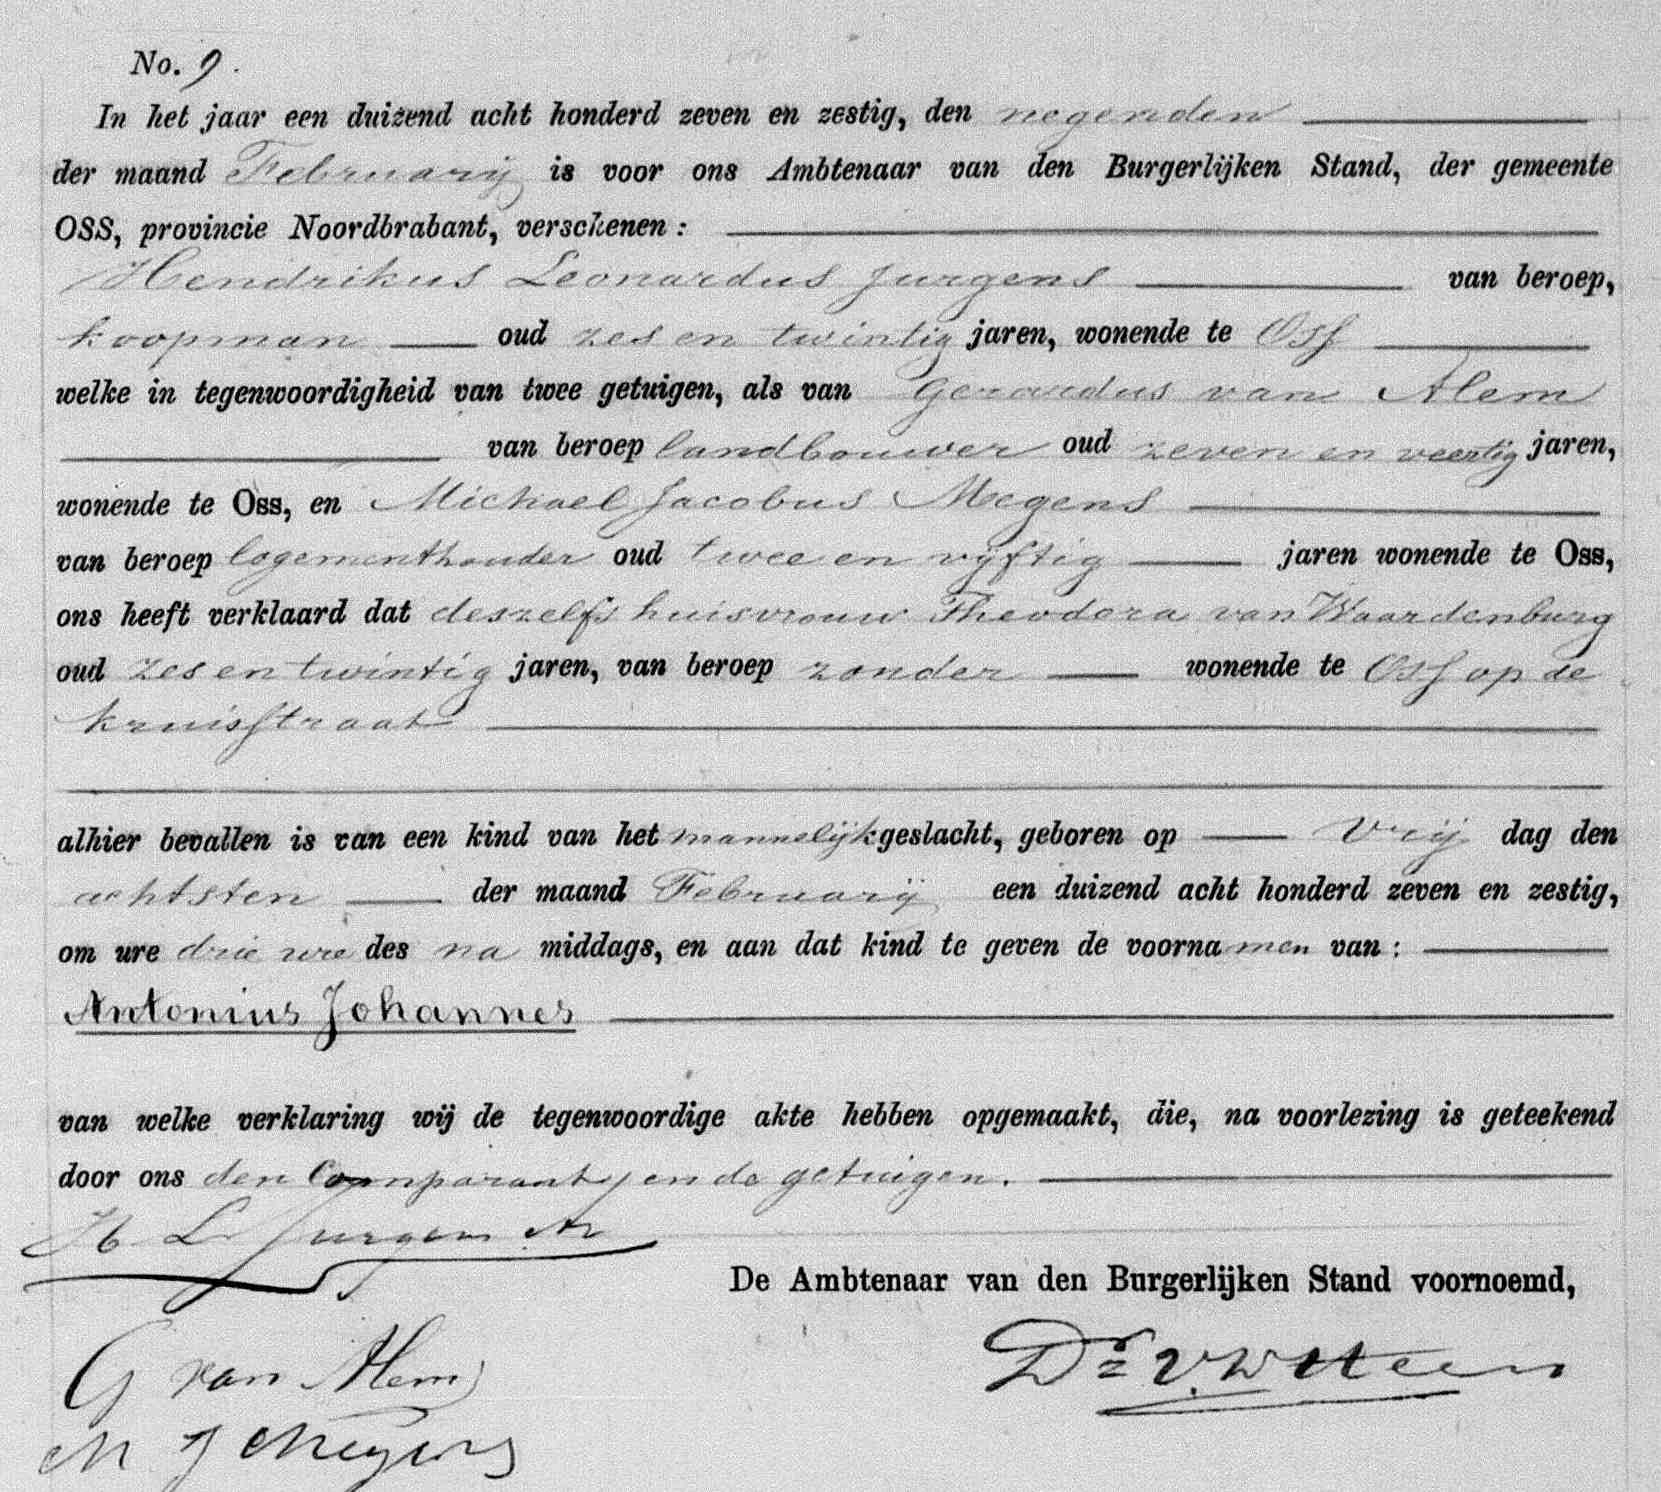 No. 9.
In het jaar een duizend acht honderd zeven en zestig, den negenden
der maand Februarij is voor ons Ambtenaar van den Burgerlijken Stand, der gemeente
OSS, provincie Noordbrabant, verschenen:
Hendrikus Leonardus Jurgens van beroep,
koopman oud zes en twintig jaren, wonende te Oss
welke in tegenwoordigheid van twee getuigen, als van Gerardus van Alem
van beroep landbouwer oud zeven en veertig jaren,
wonende te Oss, en Michael Jacobus Megens
van beroep logementhouder oud twee en vijftig jaren wonende te Oss,
ons heeft verklaard dat deszelfs huisvrouw Theodora van Waardenburg
oud zes en twintig jaren, van beroep zonder wonende te Oss op de
kruisstraat
alhier bevallen is van een kind van het mannelijk geslacht, geboren op Vrij dag den
achtsten der maand Februarij een duizend acht honderd zeven en zestig,
om ure drie ure des na middags, en aan dat kind te geven de voorna men van:
Antonius Johannes
van welke verklaring wij de tegenwoordige akte hebben opgemaakt, die, na voorlezing is geteekend
door ons den Comparant, en de getuigen.
H L Jurgens
De Ambtenaar van den Burgerlijken Stand voornoemd,
G van Alem
M J Megens